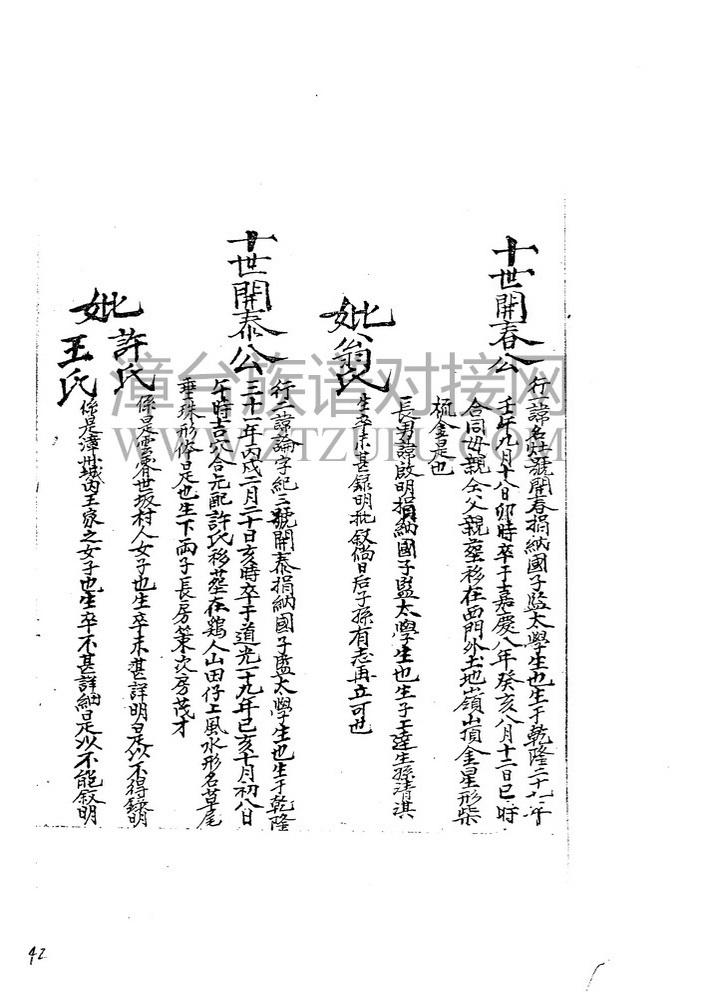 十世開春公
行一諱名灶號開春捐納國子監太學生也生于乾隆二十九年
壬午九月十八日卯時卒于嘉慶八年癸亥八月十二日巳時
合同母親仝父親塟移在西門外土地嶺山頂金星形柴
梳金是也
妣翁氏
長男諱啟明捐納國子監太學生也生子士達生孫清淇
生卒未甚錄明批叙倘日后子孫有志再立可也
十世開泰公
行二諱論字紀三號開泰捐納國子監太學生也生于乾隆
三十一年丙戌二月二十日亥時卒于道光十九年己亥十月初八日
午時吉穴合元配許氏移塟在鷄人山田仔工風水形名草尾
垂珠形条是也生下兩子長房策次房茂才
妣許氏
係是雲霄世坂村人女子也生卒未甚詳明是以不得錄明
王氏
係是漳州城內王家之女子也生卒不甚詳細是以不能叙明
漳台族谱对接网
WWW.ZTZUPU.COM
42